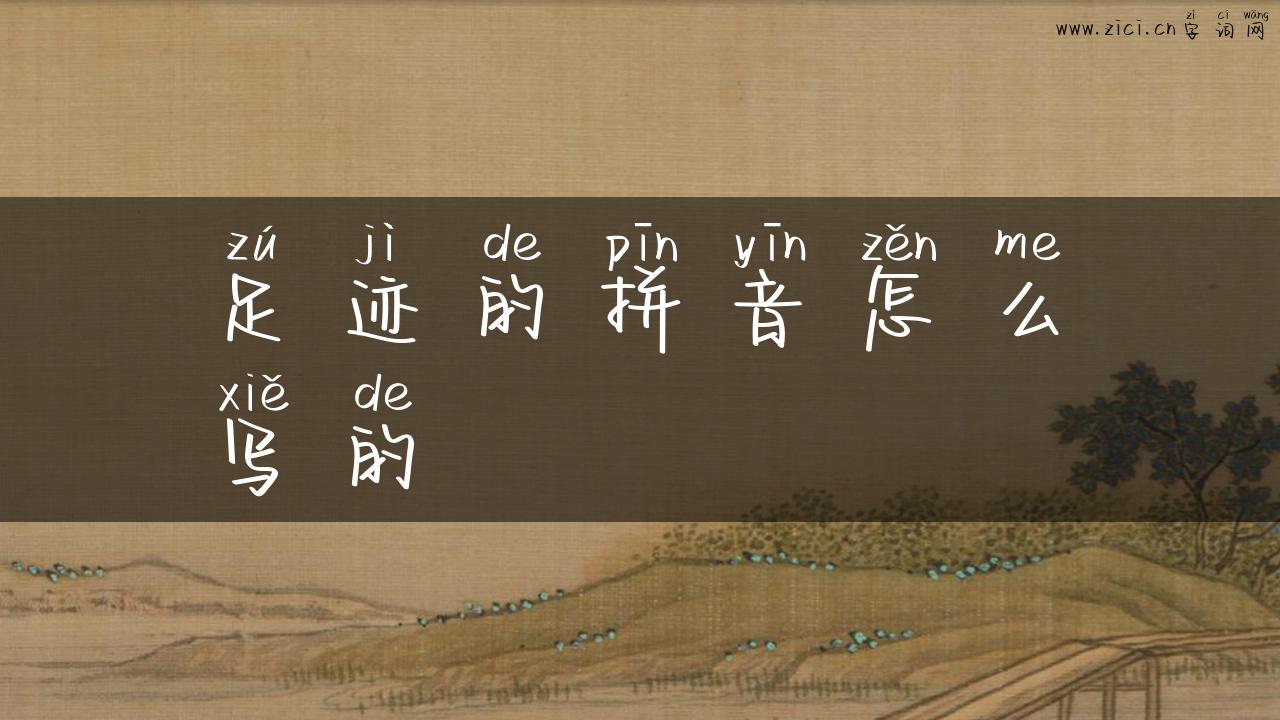 zì cí wǎng
www.zici.cn 字词网
zú jì de pīn yīn zěn me
足迹的拼音怎么
xiě de
写的